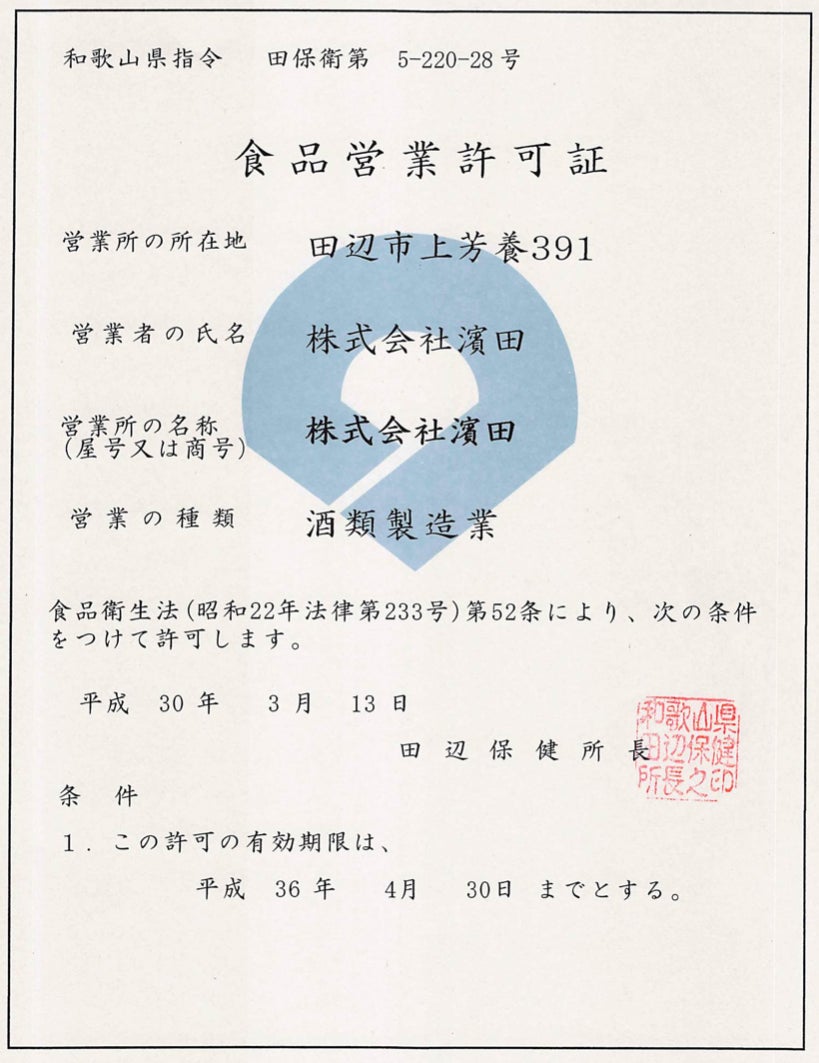 和歌山県指令 田保衛第 5-220-28号
食品営業許可証
営業所の所在地 田辺市上芳養391
営業者の氏名 株式会社濱田
営業所の名称 株式会社濱田
(屋号又は商号)
営業の種類 酒類製造業
食品衛生法(昭和22年法律第233号)第52条により、次の条件
をつけて許可します。
平成 30年 3月 13日
田辺保健所長
和歌山県
田辺保健
所長之印
条件
1. この許可の有効期限は、
平成 36年 4月 30日 までとする。